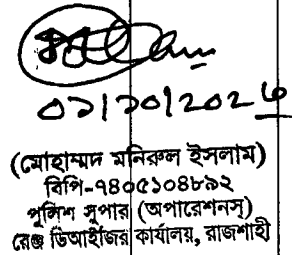 ০১/১০/২০২৫
(মোহাম্মদ মনিরুল ইসলাম)
বিপি-৭৪০৫১০৪৮৯২
পুলিশ সুপার (অপারেশনস্)
রেঞ্জ ডিআইজির কার্যালয়, রাজশাহী